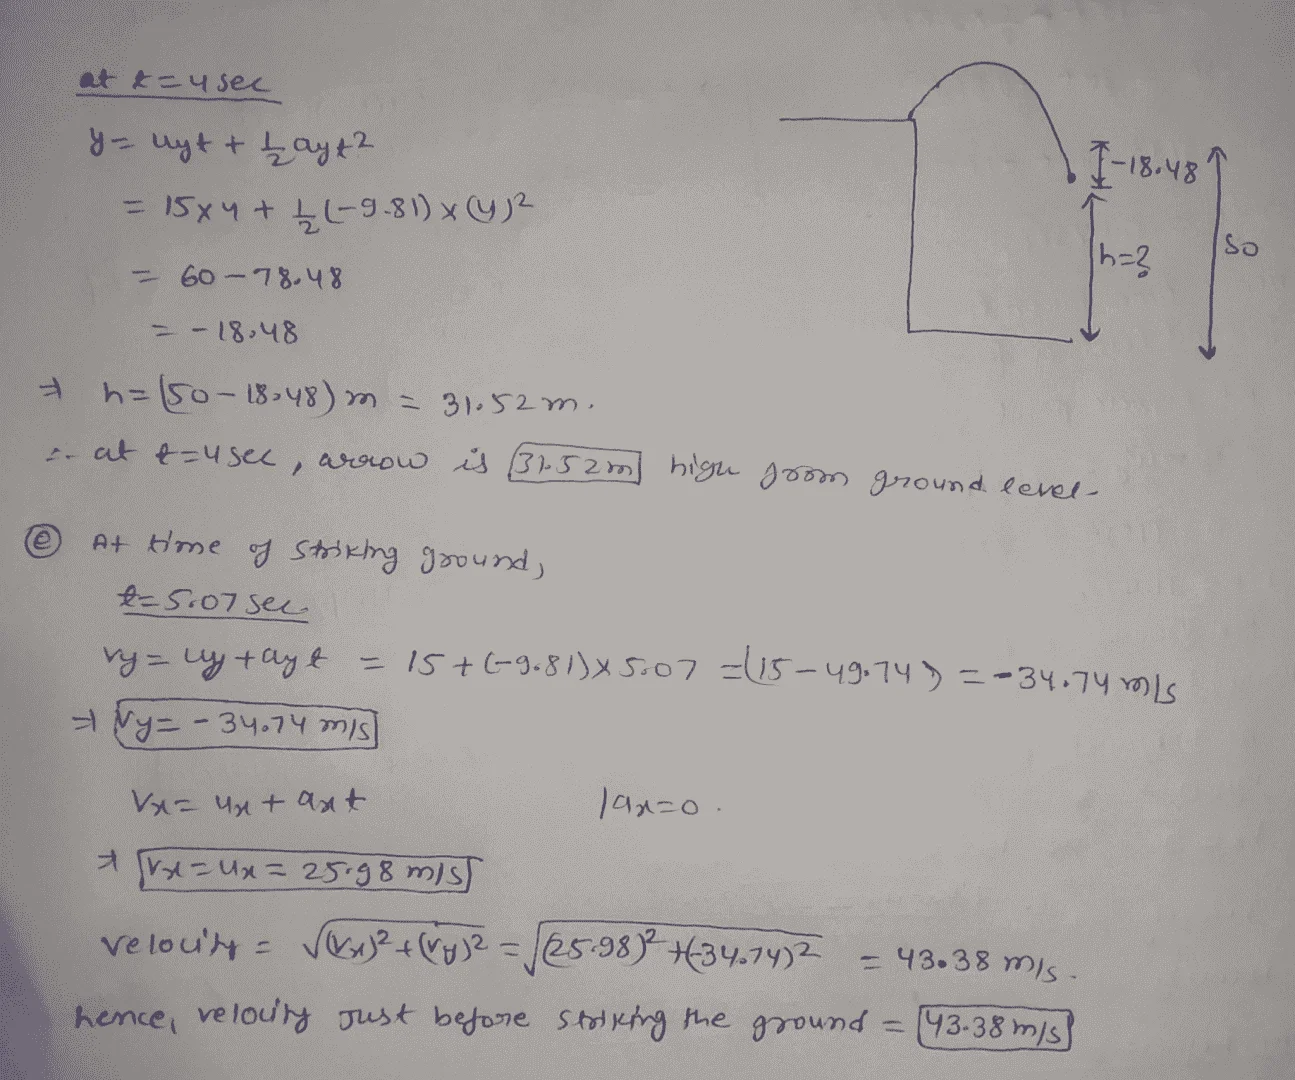 at t=4 sec
y= uyt + 1/2 ayt2
= 15x4 + 1/2 (-9.81) x (4)2
= 60-78.48
= -18.48
-18.48
h=?
50
⇒ h=(50-18.48) m = 31.52 m.
∴ at t=4 sec, arrow is 31.52m high from ground level.
(e) At time of striking ground,
t=5.07 sec.
vy= uy+ayt = 15+(-9.81)x5.07 =(15-49.74) = -34.74 m/s
⇒ vy= -34.74 m/s
vx= ux + axt /ax=0.
⇒ vx=ux= 25.98 m/s
velocity = √(vx)2+(vy)2 = √(25.98)2+(-34.74)2 = 43.38 m/s.
hence, velocity just before striking the ground = 43.38 m/s